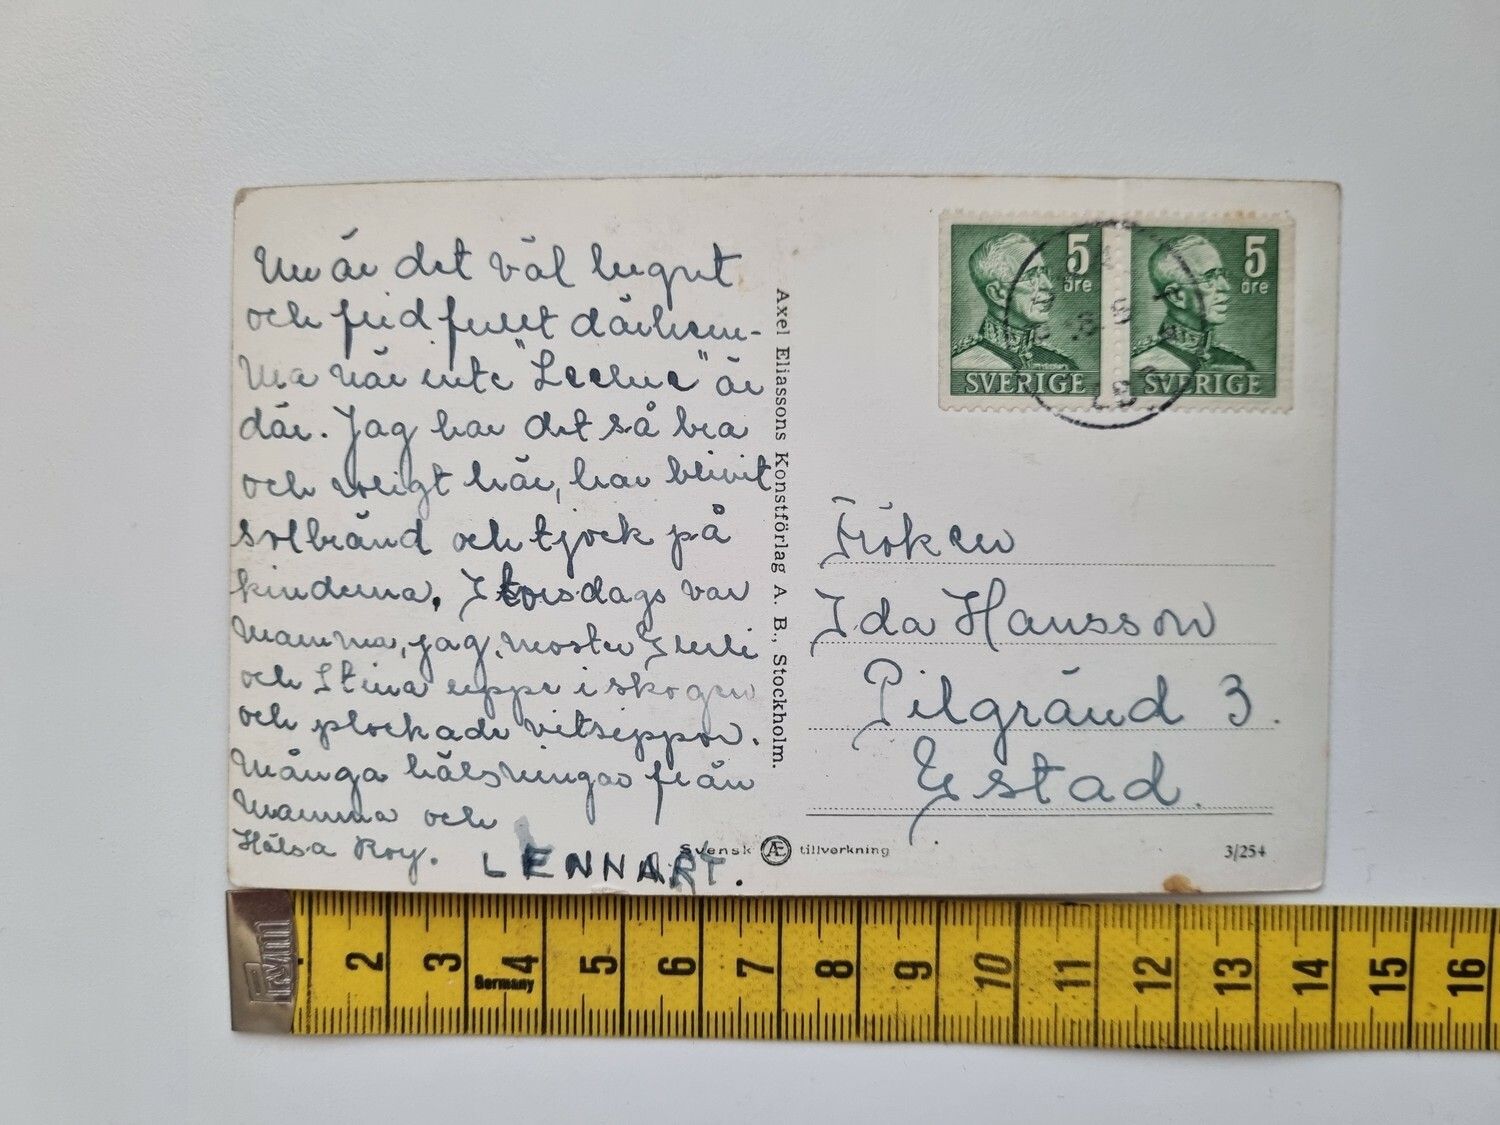 Nu är det väl lugnt
och fridfullt därhem-
ma när inte "Leelue" är
där. Jag har det så bra
och roligt här, har blivit
solbränd och tjock på
kinderna. I torsdags var
Mamma, jag, moster Juli
och Stina uppe i skogen
och plockade vitsippor.
Många hälsningar från
Mamma och
Hälsa Roy. LENNART.
Axel Eliassons Konstförlag A. B., Stockholm.
5
öre
SVERIGE
5
öre
SVERIGE
Fröken
Ida Hansson
Pilgränd 3.
Ystad.
Svensk AE tillverkning
3/254
Prym
2 3 4 5 6 7 8 9 10 11 12 13 14 15 16
Germany